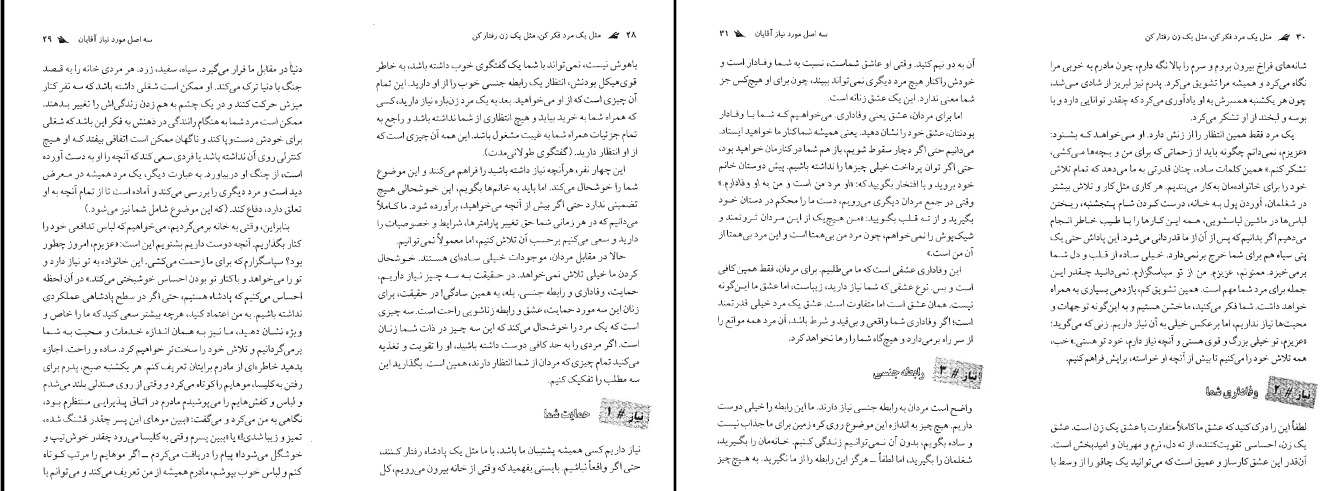 ۲۸ مثل یک مرد فکر کن، مثل یک زن رفتار کن
باهوش نیست، نمی‌تواند با شما یک گفتگوی خوب داشته باشد، به خاطر
قوی‌هیکل بودنش، انتظار یک رابطه جنسی خوب را از او دارید. این تمام
آن چیزی است که از او می‌خواهید. بعد به یک مرد زن‌باره نیاز دارید، کسی
که همراه شما به خرید بیاید و هیچ انتظاری از شما نداشته باشد و راجع به
تمام جزئیات همراه شما به غیبت مشغول باشد. این همه آن چیزی است که
از او انتظار دارید. (گفتگوی طولانی‌مدت).
این چهار نفر، هرآنچه نیاز داشته باشید را فراهم می‌کنند و این موضوع
شما را خوشحال می‌کند. اما باید به خانم‌ها بگویم، این خوشحالی هیچ
تضمینی ندارد حتی اگر بیش از آنچه می‌خواهید، برآورده شود. ما کاملاً
می‌دانیم که در هر زمانی شما حق تغییر پارامترها، شرایط و خصوصیات را
دارید و سعی می‌کنیم برحسب آن تلاش کنیم، اما معمولاً نمی‌توانیم.
حالا در مقابل مردان، موجودات خیلی ساده‌ای هستند. خوشحال
کردن ما خیلی تلاش نمی‌خواهد. در حقیقت به سه چیز نیاز داریم،
حمایت، وفاداری و رابطه جنسی. بله، به همین سادگی! در حقیقت، برای
زنان این سه مورد حمایت، عشق و رابطه زناشویی راحت است. سه چیزی
است که یک مرد را خوشحال می‌کند که این سه چیز در ذات شما زنان
است. اگر مردی را به حد کافی دوست داشته باشید، او را تقویت و تغذیه
می‌کنید تمام چیزی که مردان از شما انتظار دارند، همین است. بگذارید این
سه مطلب را تفکیک کنیم.
نیاز # ۱ حمایت شما
نیاز داریم کسی همیشه پشتیبان ما باشد، با ما مثل یک پادشاه رفتار کنند،
حتی اگر واقعاً نباشیم. بایستی بفهمید که وقتی از خانه بیرون می‌رویم، کل
سه اصل مورد نیاز آقایان ۲۹
دنیا در مقابل ما قرار می‌گیرد. سیاه، سفید، زرد. هر مردی خانه را به قصد
جنگ با دنیا ترک می‌کند. او ممکن است شغلی داشته باشد که سه نفر کنار
میزش حرکت کنند و در یک چشم به هم زدن زندگی‌اش را تغییر بدهند.
ممکن است مرد شما به هنگام رانندگی در ذهنش به فکر این باشد که شغلی
برای خودش دست‌وپا کند و ناگهان ممکن است اتفاقی بیفتد که او هیچ
کنترلی روی آن نداشته باشد یا فردی سعی کند که آنچه را او به دست آورده
است، از چنگ او دربیاورد. به عبارت دیگر، یک مرد همیشه در معرض
دید است و مرد دیگری را بررسی می‌کند و آماده است تا از تمام آنچه به او
تعلق دارد، دفاع کند. (که این موضوع شامل شما نیز می‌شود.)
بنابراین، وقتی به خانه برمی‌گردیم، می‌خواهیم که لباس تدافعی خود را
کنار بگذاریم. آنچه دوست داریم بشنویم این است: «عزیزم، امروز چطور
بود؟ سپاسگزارم که برای ما زحمت می‌کشی. این خانواده به تو نیاز دارد و
تو را می‌خواهد و با کنار تو بودن احساس خوشبختی می‌کند.» در آن لحظه
احساس می‌کنیم که پادشاه هستیم، حتی اگر در سطح پادشاهی عملکردی
نداشته باشیم. به من اعتماد کنید، هرچه بیشتر سعی کنید که ما را خاص و
ویژه نشان دهید، ما نیز به همان اندازه خدمات و محبت به شما
برمی‌گردانیم و تلاش خود را سخت‌تر خواهیم کرد. ساده و راحت. اجازه
بدهید خاطره‌ای از مادرم برایتان تعریف کنم. هر یکشنبه صبح، پدرم برای
رفتن به کلیسا، موهایم را کوتاه می‌کرد و وقتی از روی صندلی بلند می‌شدم
و لباس و کفش‌هایم را می‌پوشیدم مادرم در اتاق پذیرایی منتظرم بود،
نگاهی به من می‌کرد و می‌گفت: «ببین موهای این پسر چقدر قشنگ شده،
تمیز و زیبا شدی!» یا «ببین پسرم وقتی به کلیسا می‌رود چقدر خوش‌تیپ و
خوشگل می‌شود!» پیام را دریافت می‌کردم ــ اگر موهایم را مرتب کوتاه
کنم و لباس خوب بپوشم، مادرم همیشه از من تعریف می‌کند و می‌توانم با
۳۰ مثل یک مرد فکر کن، مثل یک زن رفتار کن
شانه‌های فراخ بیرون بروم و سرم را بالا نگه دارم، چون مادرم به خوبی مرا
نگاه می‌کرد و همیشه مرا تشویق می‌کرد. پدرم نیز لبریز از شادی می‌شد،
چون هر یکشنبه همسرش به او یادآوری می‌کرد که چقدر توانایی دارد و با
بوسه و لبخند از او تشکر می‌کرد.
یک مرد فقط همین انتظار را از زنش دارد. او می‌خواهد که بشنود:
«عزیزم، نمی‌دانم چگونه باید از زحماتی که برای من و بچه‌ها می‌کشی،
تشکر کنم.» همین کلمات ساده، چنان قدرتی به ما می‌دهد که تمام تلاش
خود را برای خانواده‌مان به کار می‌بندیم. هر کاری مثل کار و تلاش بیشتر
در شغلمان، آوردن پول به خانه، درست کردن شام پنجشنبه، ریختن
لباس‌ها در ماشین لباسشویی. همه این کارها را با طیب خاطر انجام
می‌دهیم اگر بدانیم که پس از آن از ما قدردانی می‌شود. این پاداش حتی یک
پنی سیاه هم برای شما خرج برنمی‌دارد. خیلی ساده از قلب و دل شما
برمی‌خیزد. ممنونم، عزیزم. من از تو سپاسگزارم. نمی‌دانید چقدر این
جمله برای مرد شما مهم است. همین تشویق کم، بازدهی بسیاری به همراه
خواهد داشت. شما فکر می‌کنید، ما خشن هستیم و به این‌گونه توجهات و
محبت‌ها نیاز نداریم، اما برعکس خیلی به آن نیاز داریم. زنی که می‌گوید:
«عزیزم، تو خیلی بزرگ و قوی هستی و آنچه نیاز دارم، خود تو هستی» خب،
همه تلاش خود را می‌کنیم تا بیش از آنچه او خواسته، برایش فراهم کنیم.
نیاز # ۲ وفاداری شما
لطفاً این را درک کنید که عشق ما کاملاً متفاوت با عشق یک زن است. عشق
یک زن، احساسی تقویت‌کننده، از ته دل، نرم و مهربان و امیدبخش است.
آن‌قدر این عشق کارساز و عمیق است که می‌توانید یک چاقو را از وسط با
سه اصل مورد نیاز آقایان ۳۱
آن به دو نیم کنید. وقتی او عاشق شماست، نسبت به شما وفادار است و
خودش را کنار هیچ مرد دیگری نمی‌تواند ببیند، چون برای او هیچ‌کس جز
شما معنی ندارد. این یک عشق زنانه است.
اما برای مردان، عشق یعنی وفاداری. می‌خواهیم که شما با وفادار
بودنتان، عشق خود را نشان دهید. یعنی همیشه شما کنار ما خواهید ایستاد.
می‌دانیم حتی اگر دچار سقوط شویم، باز هم شما در کنارمان خواهید بود،
حتی اگر توان پرداخت خیلی چیزها را نداشته باشیم. پیش دوستان خانم
خود بروید و با افتخار بگویید که: «او مرد من است و من به او وفادارم.»
وقتی در جمع مردان دیگری می‌رویم، دست ما را محکم در دستان خود
بگیرید و از ته قلب بگویید: «من هیچ‌یک از این مردان ثروتمند و
شیک‌پوش را نمی‌خواهم، چون مرد من بی‌همتا است و این مرد بی‌همتا از
آن من است.»
این وفاداری عشقی است که ما می‌طلبیم. برای مردان، فقط همین کافی
است و بس. نوع عشقی که شما نیاز دارید، زیباست، اما عشق ما این‌گونه
نیست. همان عشق است اما متفاوت است. عشق یک مرد خیلی قدرتمند
است؛ اگر وفاداری شما واقعی و بی‌قید و شرط باشد، آن مرد همه موانع را
از سر راه برمی‌دارد و هیچ‌گاه شما را رها نخواهد کرد.
نیاز # ۳ رابطه جنسی
واضح است مردان به رابطه جنسی نیاز دارند. ما این رابطه را خیلی دوست
داریم. هیچ چیز به اندازه این موضوع روی کره زمین برای ما جذاب نیست
و ساده بگویم، بدون آن نمی‌توانیم زندگی کنیم. خانه‌مان را بگیرید،
شغلمان را بگیرید، اما لطفاً ــ هرگز این رابطه را از ما نگیرید. به هیچ چیز